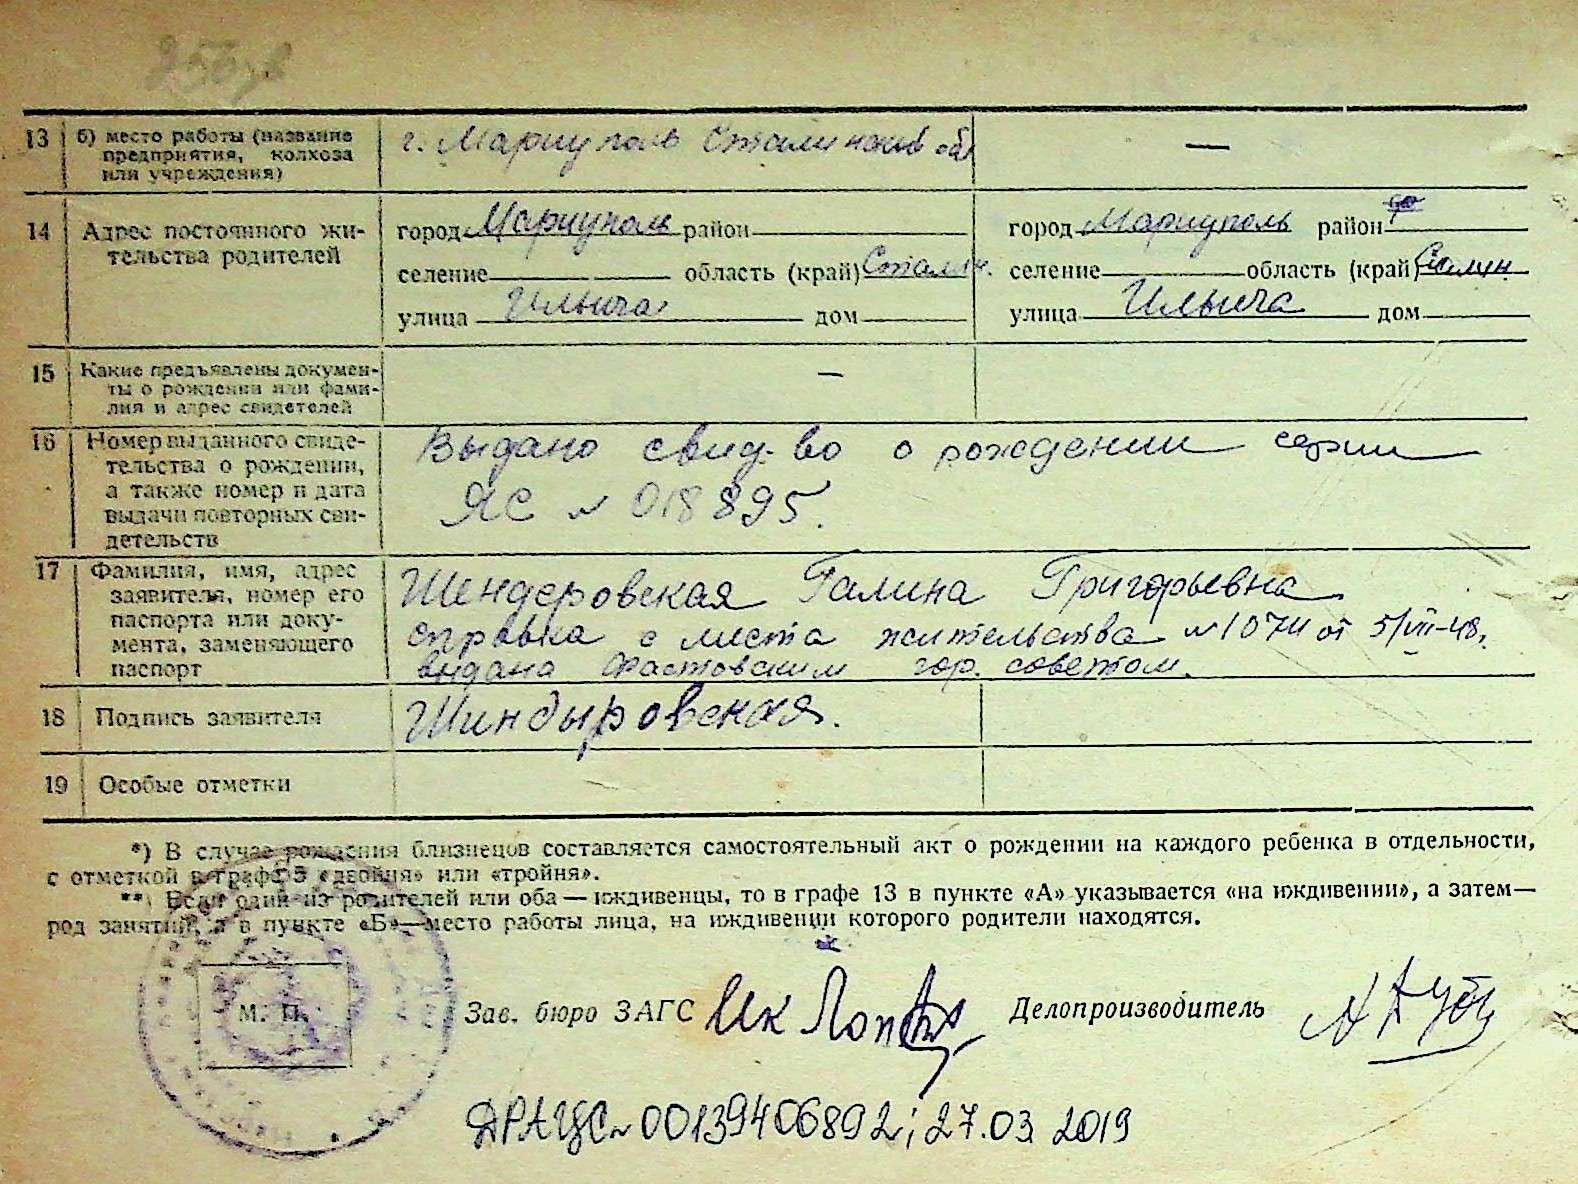 13 б) место работы (название предприятия, колхоза или учреждения) г. Мариуполь Сталинской об. —
14 Адрес постоянного жительства родителей
город Мариуполь район город Мариуполь район
селение — область (край) Сталин. селение область (край) Сталин
улица Ильича дом улица Ильича дом
15 Какие предъявлены докумен-
ты о рождении или фами-
лия и адрес свидетелей —
16 Номер выданного свиде-
тельства о рождении,
а также номер и дата
выдачи повторных сви-
детельств
Выдано свид-во о рождении серии
ЯС № 018895.
17 Фамилия, имя, адрес
заявителя, номер его
паспорта или доку-
мента, заменяющего
паспорт
Шендеровская Галина Григорьевна
справка с места жительства № 1074 от 5/VII-48,
выдана Фастовским гор. советом.
18 Подпись заявителя Шиндыровская.
19 Особые отметки
*) В случае рождения близнецов составляется самостоятельный акт о рождении на каждого ребенка в отдельности,
с отметкой в графе 3 «двойня» или «тройня».
**) Если один из родителей или оба — иждивенцы, то в графе 13 в пункте «А» указывается «на иждивении», а затем—
род занятий, а в пункте «Б»—место работы лица, на иждивении которого родители находятся.
М. П. Зав. бюро ЗАГС Делопроизводитель
ДРАЦС № 00139406892; 27.03 2019